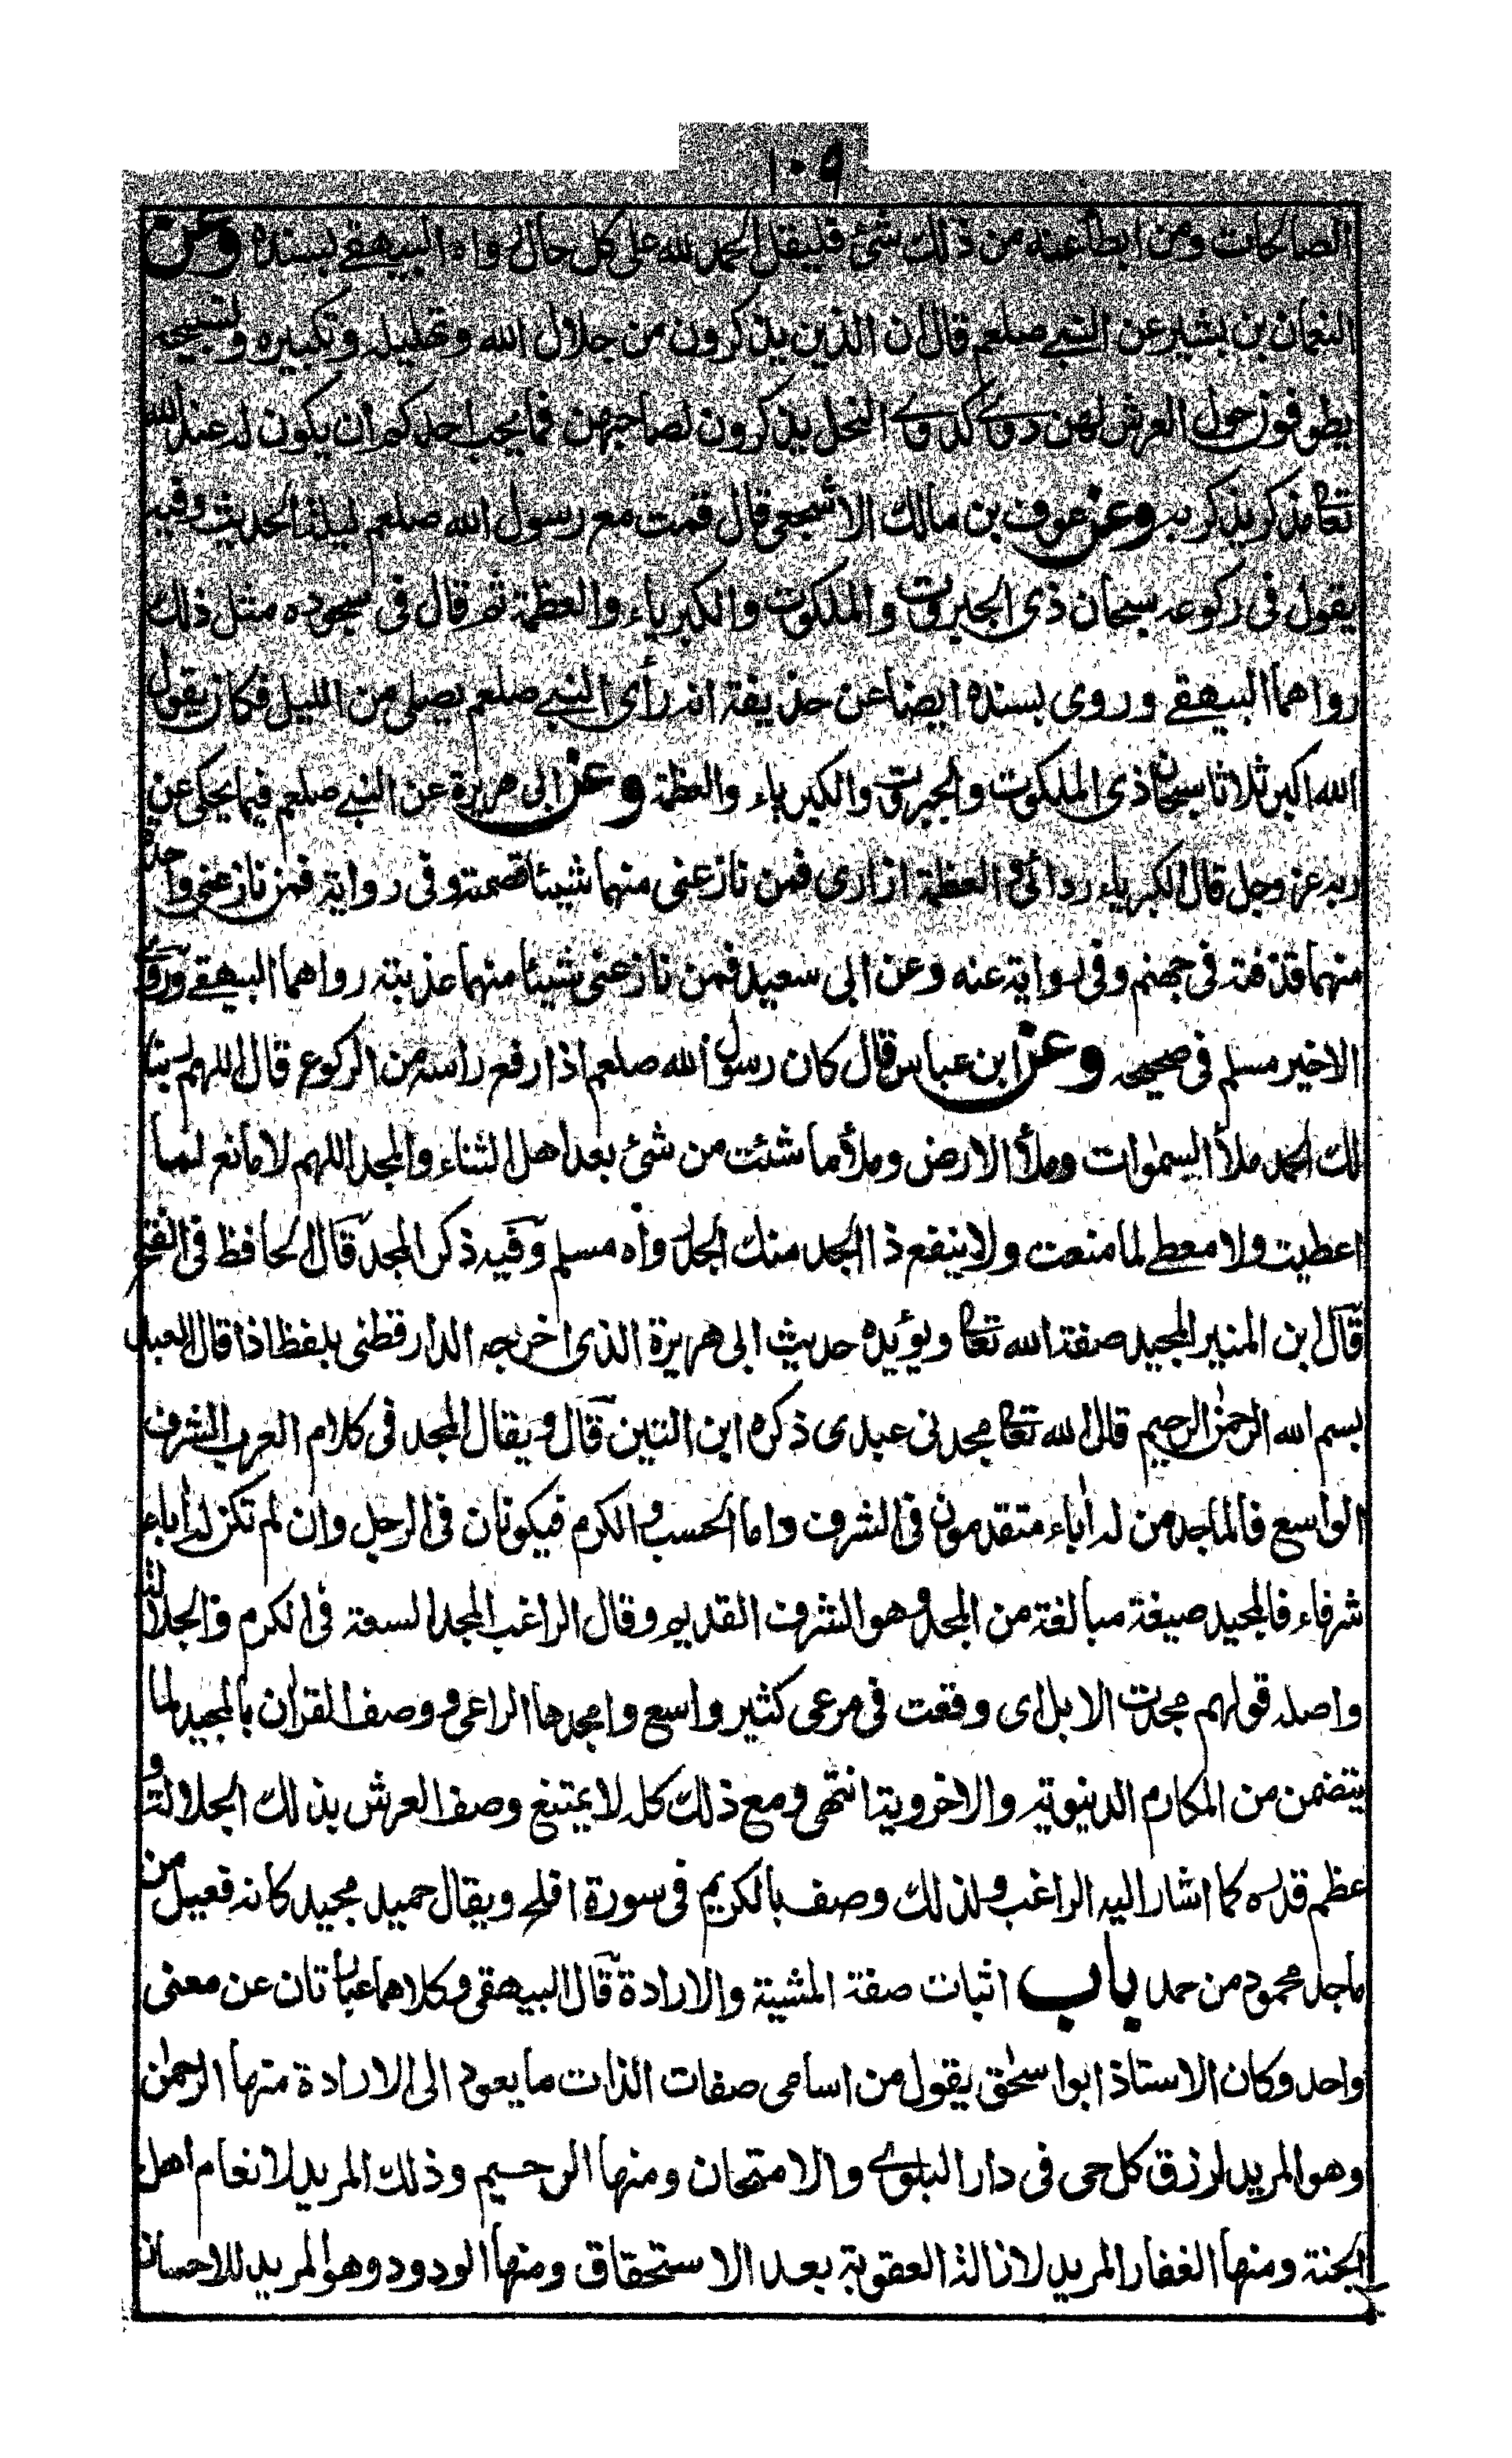 ١٠٩
الصالحات ومن ابطأ عنه من ذلك شئ فليقل الحمد لله على كل حال رواه البيهقے بسنده وعن
النعمان بن بشير عن النبے صلعم قال ان الذين يذكرون من جلال الله وتهليله وتكبيره وتسبيحه
يطوفون حول العرش لهن دوے كدوے النحل يذكرون لصاحبهن فما يحب احدكم ان يكون له عند الله
تعا مذكر يذكر به وعن عوف بن مالك الاشجعى قال قمت مع رسول الله صلعم ليلة الحديث وفيه
يقول فى ركوعه سبحان ذى الجبروت والملكوت والكبرياء والعظمة ثم قال فى سجوده مثل ذلك
رواهما البيهقے وروى بسنده ايضا عن حذيفة انه رأى النبے صلعم يصلى من الليل فكان يقول
الله اكبر ثلاثا سبحان ذى الملكوت والجبروت والكبرياء والعظمة وعن ابى هريرة عن النبے صلعم فيما يحكى عن
ربه عز وجل قال الكبرياء ردائى والعظمة ازارى فمن نازعنى منهما شيئا قصمته وفى رواية فمن نازعنى واحدة
منهما قذفته فى جهنم وفى رواية عنه وعن ابى سعيد فمن نازعنى شيئا منهما عذبته رواهما البيهقے وروے
الاخير مسلم فى صحيحه وعن ابن عباس قال كان رسول الله صلعم اذا رفع راسه من الركوع قال اللهم ربنا
لك الحمد ملأ السموات وملأ الارض وملأ ما شئت من شئ بعد اهل الثناء والمجد اللهم لا مانع لما
اعطيت ولا معطے لما منعت ولا ينفع ذا الجد منك الجد رواه مسلم وفيه ذكر المجد قال الحافظ فى الفتح
قال ابن المنير المجيد صفة الله تعا ويؤيده حديث ابى هريرة الذى اخرجه الدارقطنى بلفظ اذا قال العبد
بسم الله الرحمن الرحيم قال الله تعا مجدنى عبدى ذكره ابن التين قال ويقال المجد فى كلام العرب الشرف
الواسع فالماجد من له أباء متقدمون فى الشرف واما الحسب والكرم فيكونان فى الرجل وان لم تكن له أباء
شرفاء فالمجيد صيغة مبالغة من المجد وهو الشرف القديم وقال الراغب المجد السعة فى الكرم والجلالة
واصله قولهم مجدت الابل اى وقعت فى مرعى كثير واسع وامجدها الراعى ووصف القرأن بالمجيد لما
يتضمن من المكارم الدنيوية والاخروية انتهى ومع ذلك كله لا يمتنع وصف العرش بذلك الجلالة و
عظم قدره كما اشار اليه الراغب ولذلك وصف بالكريم فى سورة افلح ويقال حميد مجيد كانه فعيل من
ماجد محمود من حمد باب اثبات صفة المشية والارادة قال البيهقى وكلاهما عبارتان عن معنى
واحد وكان الاستاذ ابو اسحق يقول من اسامى صفات الذات ما يعود الى الارادة منها الرحمن
وهو المريد لرزق كل حى فى دار البلوے والامتحان ومنها الرحيم وذلك المريد لانعام اهل
الجنة ومنها الغفار المريد لازالة العقوبة بعد الاستحقاق ومنها الودود وهو المريد للاحسان